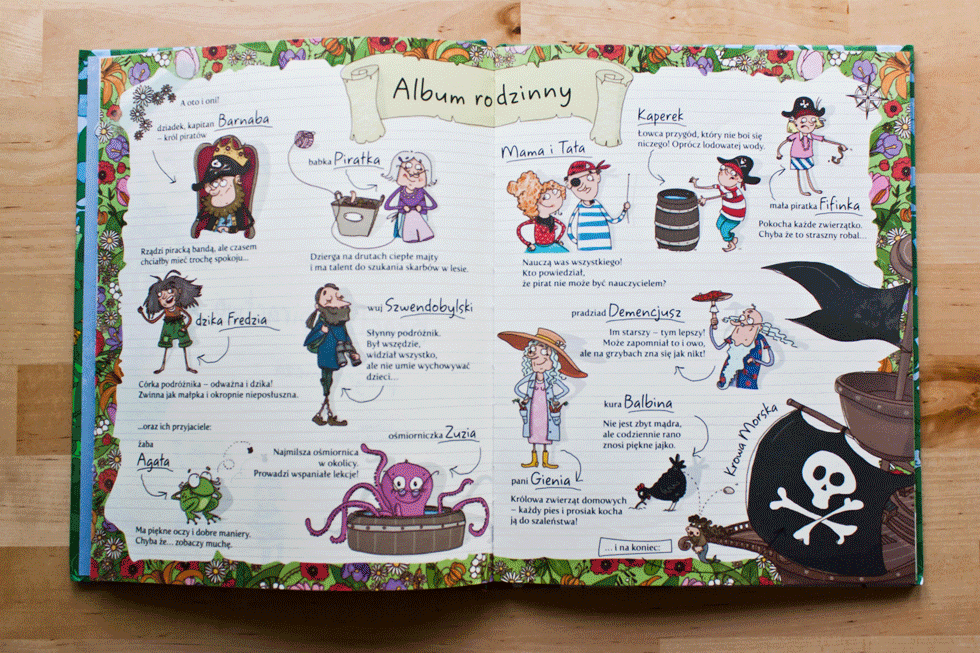 Album rodzinny
A oto i oni!
dziadek, kapitan Barnaba
– król piratów
Rządzi piracką bandą, ale czasem
chciałby mieć trochę spokoju...
babka Piratka
Dzierga na drutach ciepłe majty
i ma talent do szukania skarbów w lesie.
dzika Fredzia
Córka podróżnika – odważna i dzika!
Zwinna jak małpka i okropnie nieposłuszna.
wuj Szwendobylski
Słynny podróżnik.
Był wszędzie,
widział wszystko,
ale nie umie wychowywać
dzieci...
...oraz ich przyjaciele:
żaba
Agata
Ma piękne oczy i dobre maniery.
Chyba że... zobaczy muchę.
ośmiorniczka Zuzia
Najmilsza ośmiornica
w okolicy.
Prowadzi wspaniałe lekcje!
Mama i Tata
Nauczą was wszystkiego!
Kto powiedział,
że pirat nie może być nauczycielem?
Kaperek
Łowca przygód, który nie boi się
niczego! Oprócz lodowatej wody.
mała piratka Fifinka
Pokocha każde zwierzątko.
Chyba że to straszny robal...
pradziad Demencjusz
Im starszy – tym lepszy!
Może zapomniał to i owo,
ale na grzybach zna się jak nikt!
pani Gienia
Królowa zwierząt domowych
– każdy pies i prosiak kocha
ją do szaleństwa!
kura Balbina
Nie jest zbyt mądra,
ale codziennie rano
znosi piękne jajko.
... i na koniec:
Krowa Morska